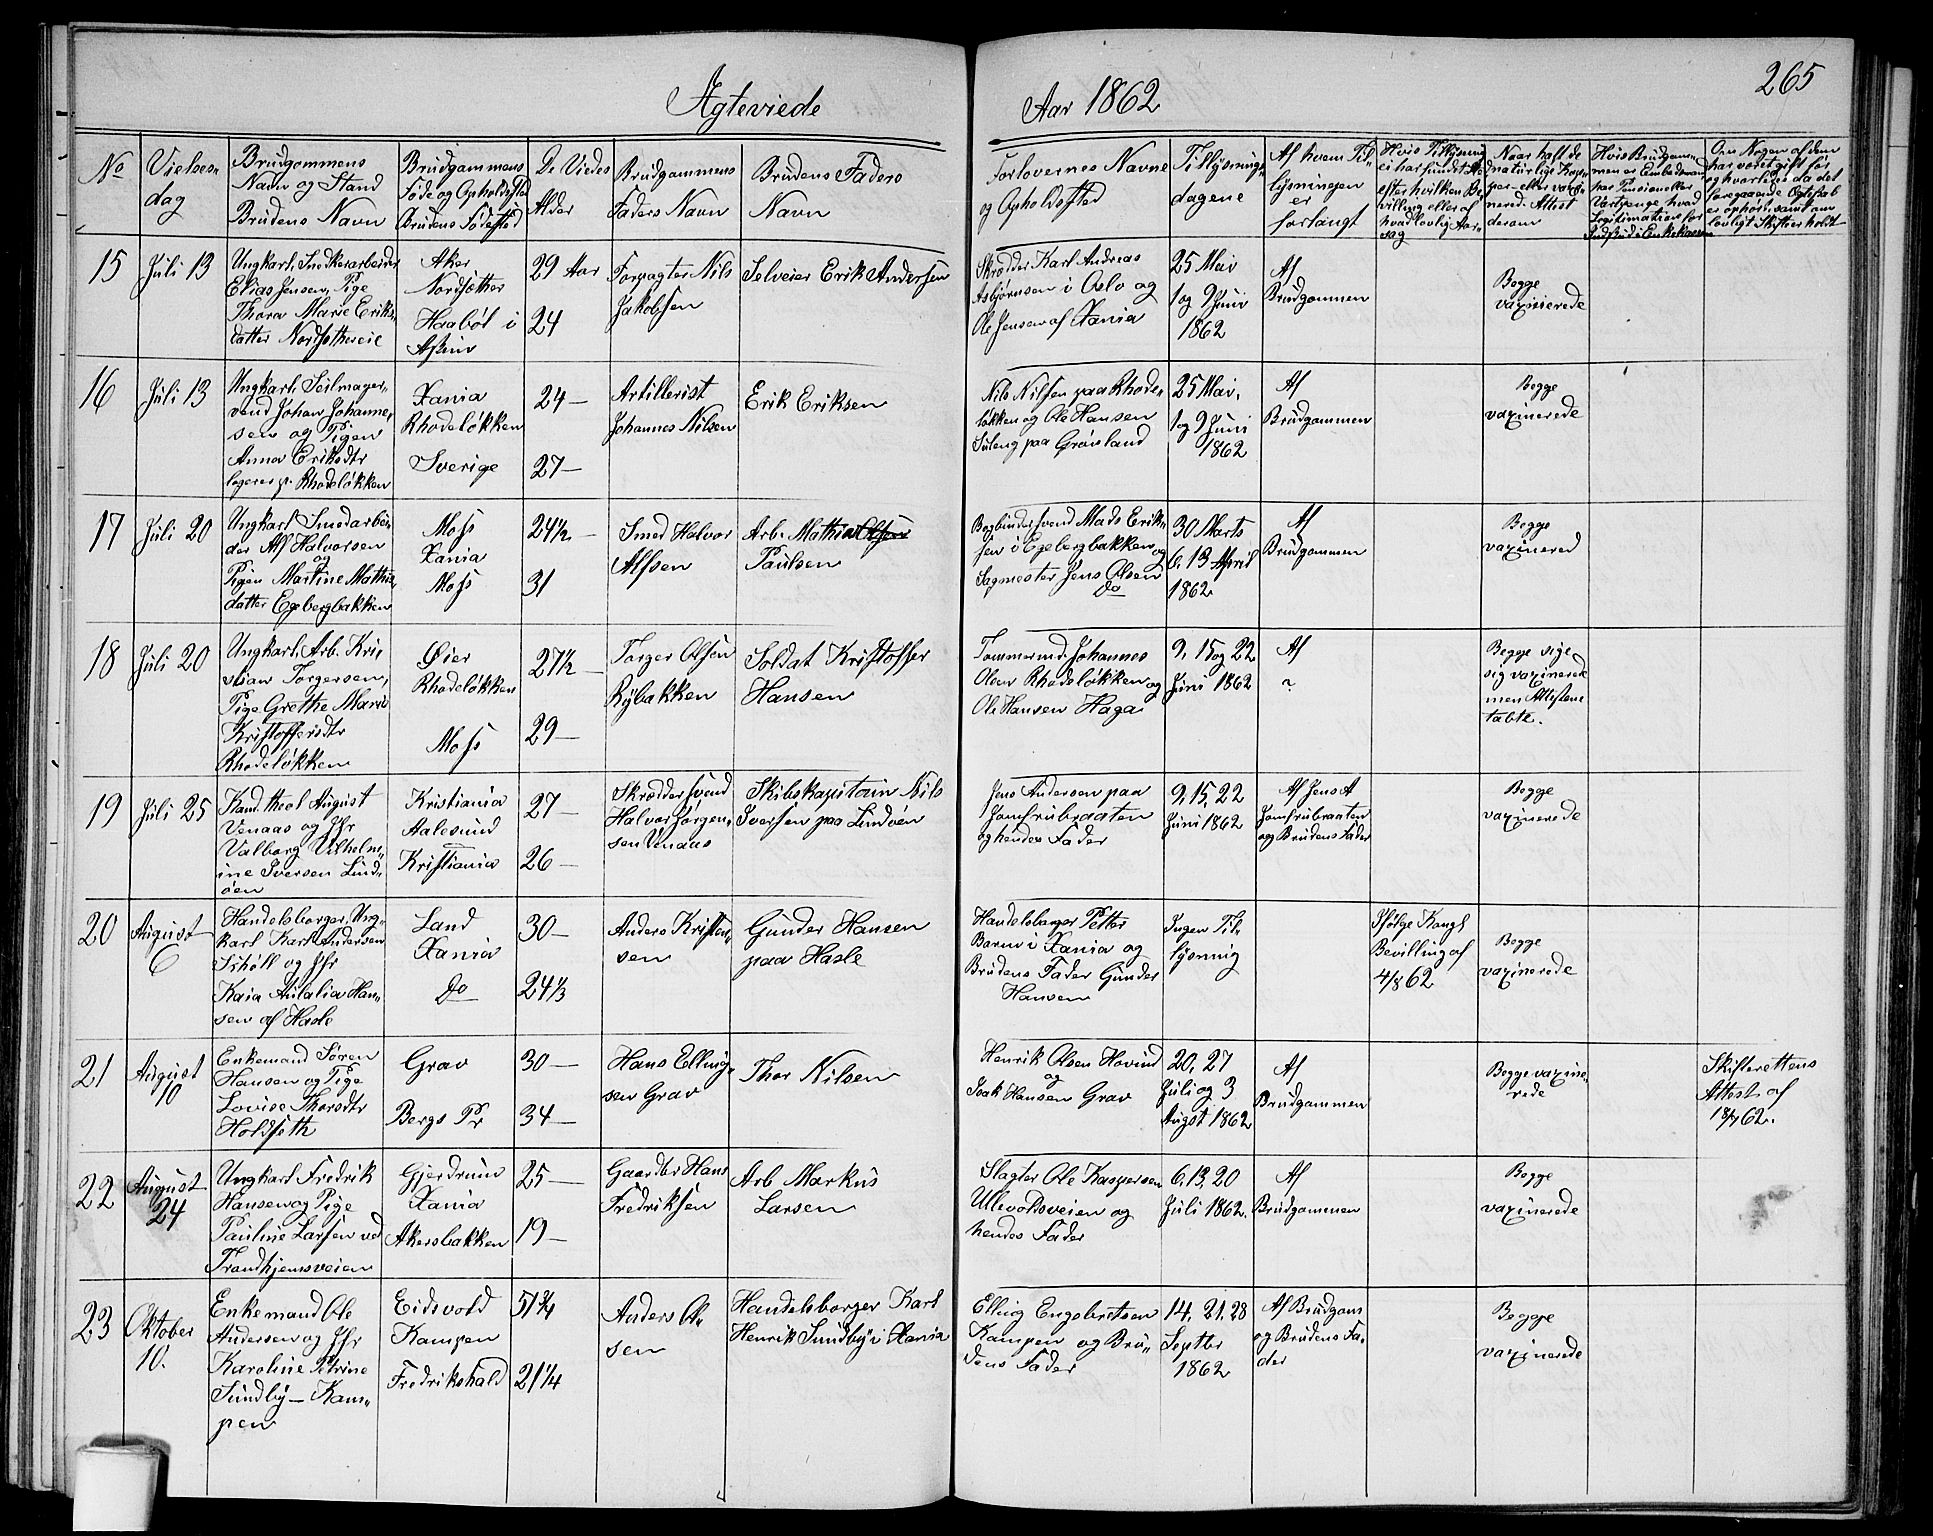 Agteviede
Aar 1862
265
No
Vielses-
dag
Brudgommens
Navn og Stand
Brudens Navn
Brudgommens
Føde og Opholdssted
Brudens Fødested
De Viedes
Alder
Brudgommens
Faders Navn
Brudens Faders
Navn
Forlovernes Navne
og Opholdssted
Tillysnings-
dagene
Af hvem Til-
lysningen
er
forlangt
Hvis Tillysning
ei har fundet Sted
efter hvilken Be-
villing eller af
hvad lovlig Aar-
sag
Naar haft de
naturlige Kop-
per eller vaxi-
nered. Attest
derom
Hvis Brudgom-
men er Embedsmand
har Pension eller
Vartpenge hvad
Legitimation for
Indskud i Enkekassen
Om Nogen af dem
har været gift før
og hvorledes da det
foregaaende Egteskab
er ophørt samt om
lovligt Skifte er holdt
15
Juli 13
Ungkarl, Snedkerarbeider
Elias Jensen, Pige
Thora Marie Eriks-
datter Nordsethereie
Aker
Nordsether
Haabøl i
Askim
29 Aar
24
Forpagter Nils
Jakobsen
Selveier Erik Andersen
Skrædder Karl Andreas
Asbjørnsen i Oslo og
Ole Jensen af Xania
25 Mai
1 og 9 Juni
1862
Af
Brudgommen
Begge
vaxinerede
16
Juli 13
Ungkarl, Seilmager-
svend Johan Johanne-
sen og Pigen
Anna Eriksdtr
logeres p. Rhodeløkken
Xania
Rhodeløkken
Sverige
24 —
27 —
Artillerist
Johannes Nilsen
Erik Eriksen
Nils Nilsen paa Rhode-
løkken og Ole Hansen
Suleng paa Grønland
25 Mai,
1 og 9 Juni
1862
Af
Brudgommen
Begge
vaxinerede
17
Juli 20
Ungkarl Smedarbei-
der Alf Halvorsen
og
Pigen Martine Mathia-
datter Egebergbakken
Moss
Xania
Moss
24½ —
31
Smed Halvor
Alfsen
Arb. Mathia Olsen
Paulsen
Bogbindersvend Mads Erik-
sen i Egebergbakken og
Sagmester Jens Olsen
Do
30 Marts
6, 13 April
1862
Af
Brudgommen
Begge
vaxinered
18
Juli 20
Ungkarl, Arb. Kri-
stian Torgersen,
Pige Grethe Marie
Kristoffersdtr
Rhodeløkken
Øier
Rhodeløkken
Moss
27½ —
29 —
Torger Olsen
Rybakken
Soldat Kristoffer
Hansen
Tømmermd. Johannes
Olsen Rhodeløkken og
Ole Hansen Haga
9, 15 og 22
Juni 1862
Af
?
Begge sige
sig vaxinerede
men Attestene
tabte.
19
Juli 25
Kand. theol August
Venaas og Jfr
Valborg Vilhelm-
ine Iversen Lind-
øen
Kristiania
Aalesund
Kristiania
27 —
26 —
Skræddersvend
Halvor Jørgen-
sen Venaas
Skibskapitain Nils
Iversen paa Lindøen
Jens Andersen paa
Jomfrubraaten
og hendes Fader
9, 15, 22
Juni 1862
Af Jens A
Jomfrubraaten
og Brudens Fader
Begge
vaxinerede
20
August
6
Handelsborger, Ung-
karl Karl Andersen
Schøll og Jfr
Kaia Aulalia Han-
sen af Hasle
Land
Xania
Do
30 —
24⅓
Anders Kristen-
sen
Gunder Hansen
paa Hasle
Handelsborger Petter
Barm i Xania og
Brudens Fader Gunder
Hansen
Ingen Til-
lysning
Ifølge Kongl
Bevilling af
4/8 62
Begge
vaxinerede
21
August
10
Enkemand Søren
Hansen og Pige
Lovise Thorsdtr
Holdseth
Grav
Bergs Pr
30 —
34 —
Hans Elling-
sen Grav
Thor Nilsen
Henrik Olsen Hovind
og
Isak Hansen Grav
20, 27
Juli og 3
Augst 1862
Af
Brudgommen
Begge vaxine-
rede
Skifterettens
Attest af
18/7 62.
22
August
24
Ungkarl Fredrik
Hansen og Pige
Pauline Larsen ved
Trondhjemsveien
Gjerdrum
Xania
Akersbakken
25 —
19 —
Gaardbr Hans
Fredriksen
Arb Markus
Larsen
Slagter Ole Kaspersen
Ullevoldsveien og
hendes Fader
6, 13, 20
Juli 1862.
Af
Brudgommen
Begge
vaxinerede
23
Oktober
10.
Enkemand Ole
Andersen og Jfr
Karoline Petrine
Sundby — Kam-
pen
Eidsvold
Kampen
Fredrikshald
51¾
21¼
Anders Ol-
sen
Handelsborger Karl
Henrik Sundby i Xania
Elling Engebretsen
Kampen og Bru-
dens Fader
14, 21, 28
Septbr
1862
Af Brudgom
og Brudens Fa-
der
Begge
vaxinerede